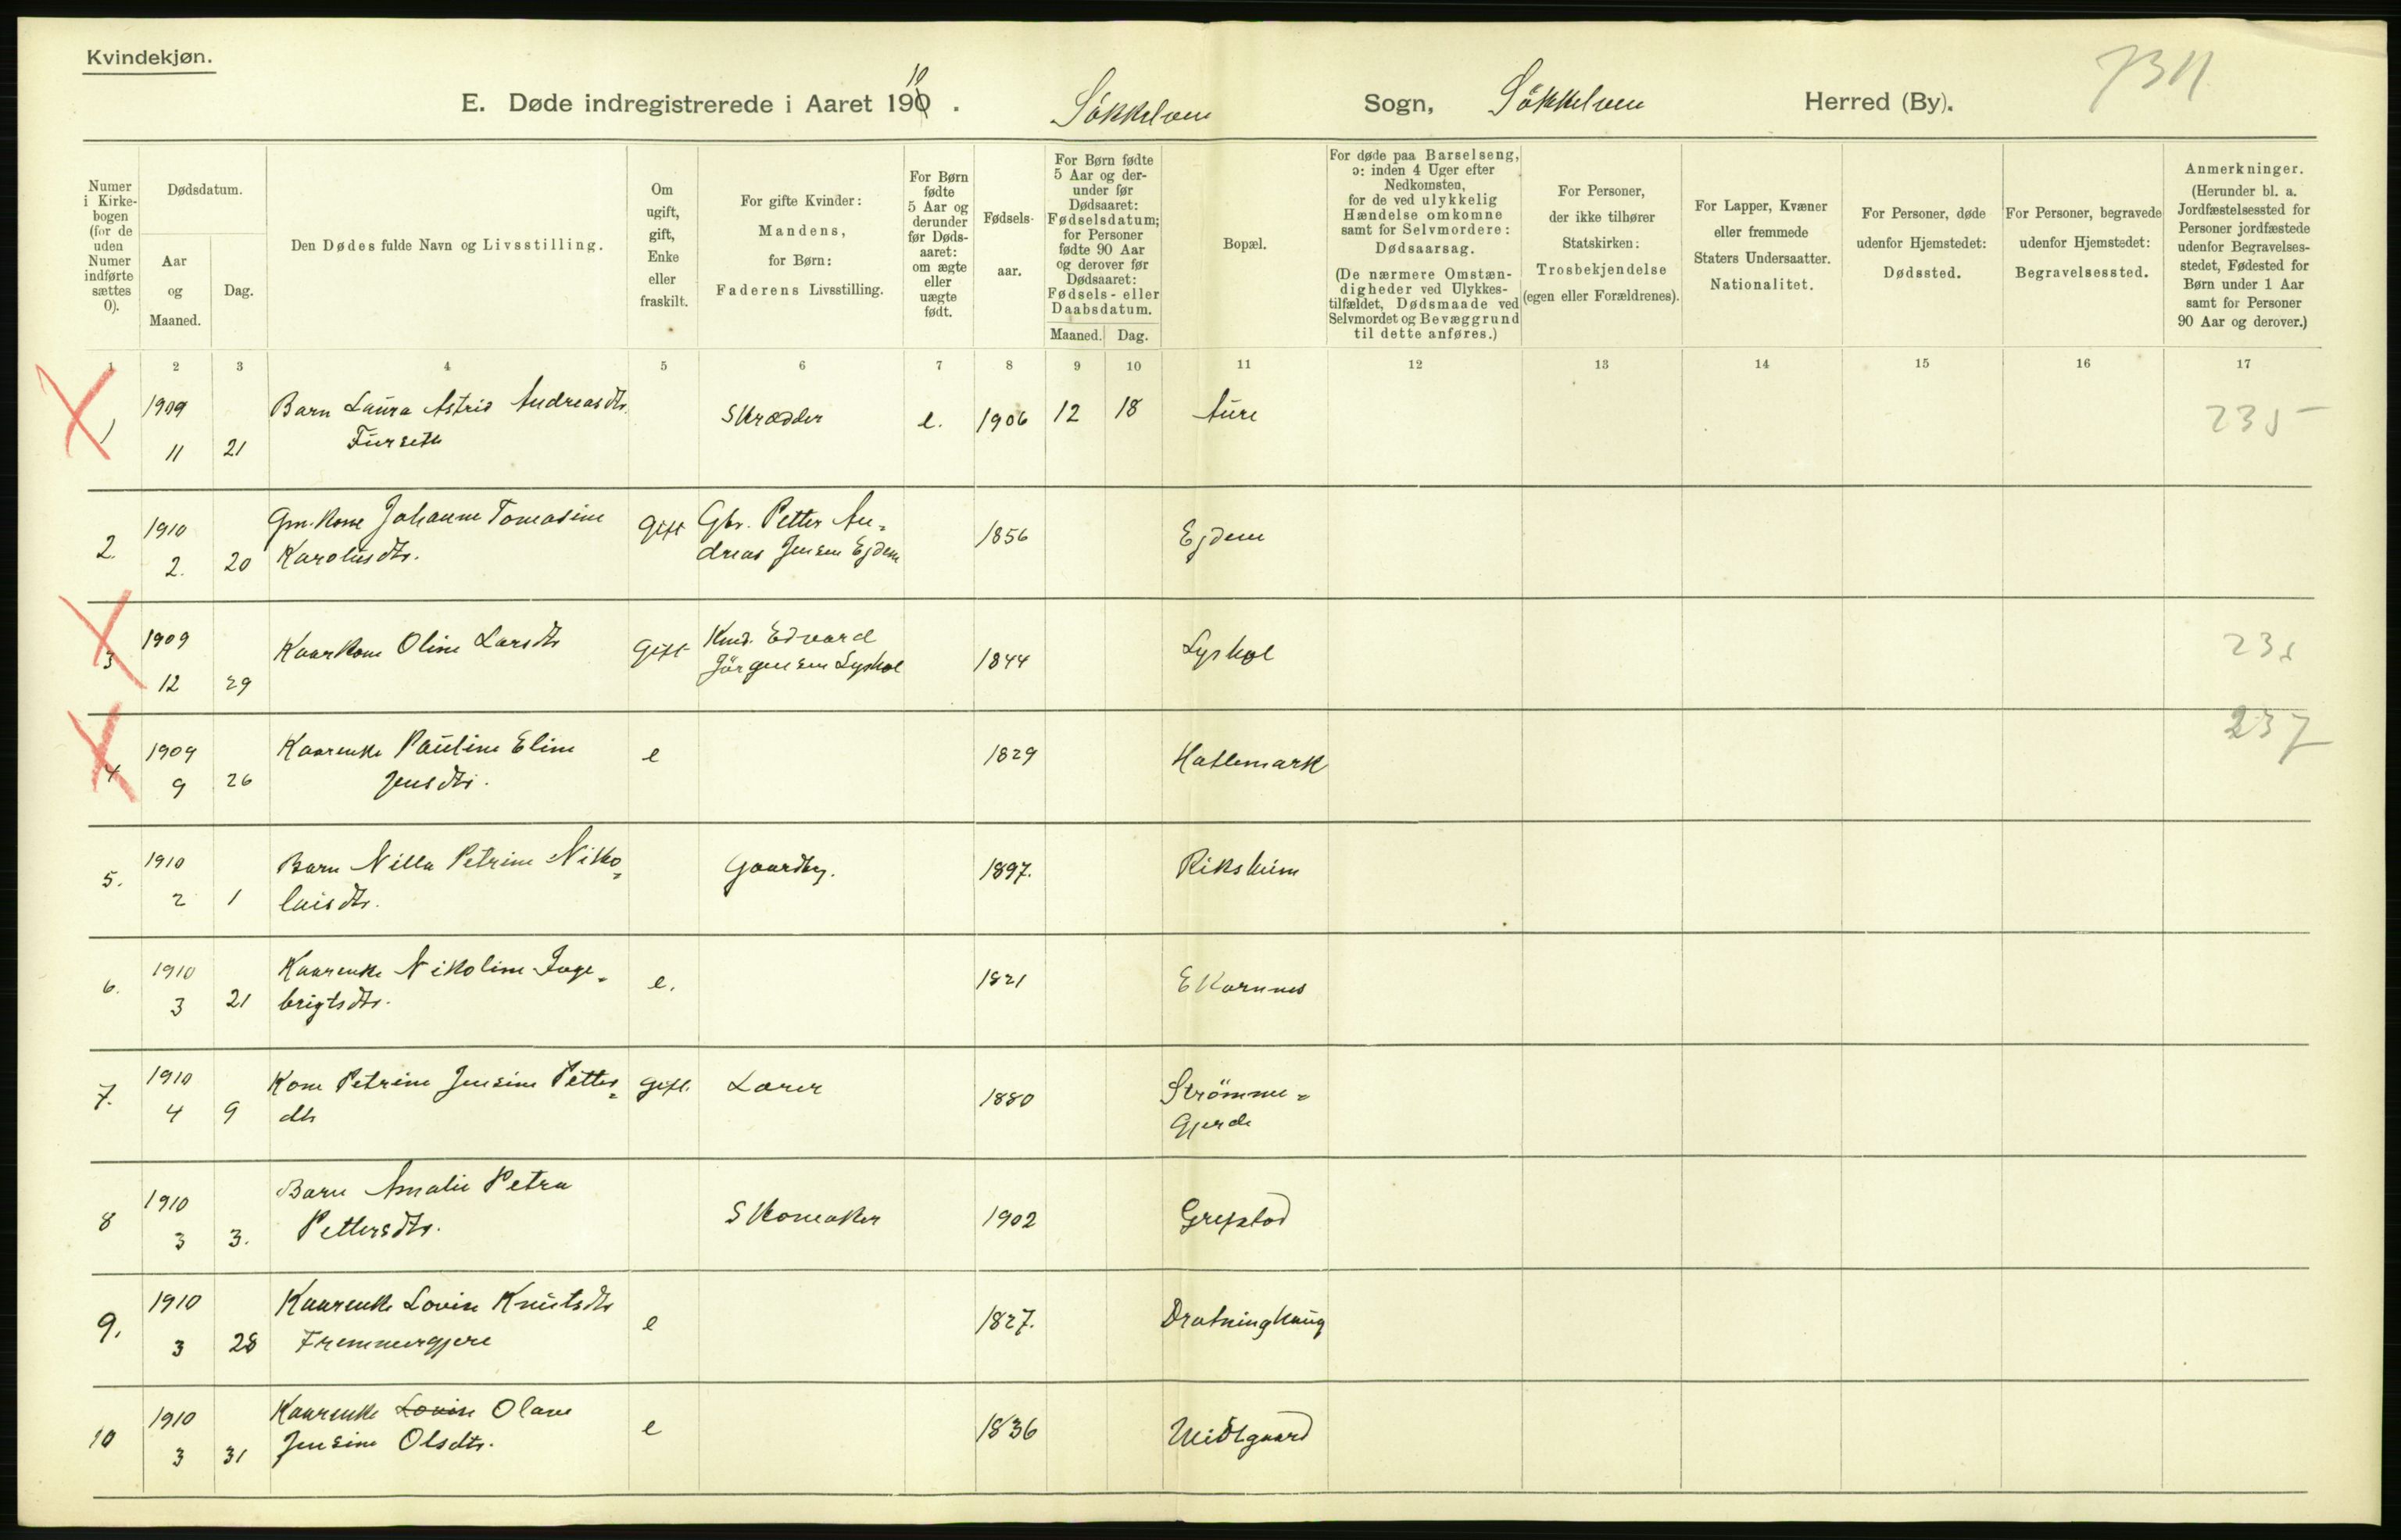 Kvindekjøn.
E. Døde indregistrerede i Aaret 1910. Sökkelven Sogn, Sökkelven Herred (By).
Numer i Kirkebogen (for de uden Numer indførte sættes 0).
Dødsdatum.
Aar og Maaned.
Dag.
Den Dødes fulde Navn og Livsstilling.
Om ugift, gift, Enke eller fraskilt.
For gifte Kvinder: Mandens, for Børn: Faderens Livsstilling.
For Børn fødte 5 Aar og derunder før Dødsaaret: om ægte eller uægte født.
Fødselsaar.
For Børn fødte 5 Aar og derunder før Dødsaaret: Fødselsdatum; for Personer fødte 90 Aar og derover før Dødsaaret: Fødsels- eller Daabsdatum.
Maaned. Dag.
Bopæl.
For døde paa Barselseng, ɔ: inden 4 Uger efter Nedkomsten, for de ved ulykkelig Hændelse omkomne samt for Selvmordere: Dødsaarsag.
(De nærmere Omstændigheder ved Ulykkestilfældet, Dødsmaade ved Selvmordet og Bevæggrund til dette anføres.)
For Personer, der ikke tilhører Statskirken: Trosbekjendelse (egen eller Forældrenes).
For Lapper, Kvæner eller fremmede Staters Undersaatter. Nationalitet.
For Personer, døde udenfor Hjemstedet: Dødssted.
For Personer, begravede udenfor Hjemstedet: Begravelsessted.
Anmerkninger.
(Herunder bl. a. Jordfæstelsessted for Personer jordfæstede udenfor Begravelsesstedet, Fødested for Børn under 1 Aar samt for Personer 90 Aar og derover.)
1 2 3 4 5 6 7 8 9 10 11 12 13 14 15 16 17
1 1909 Barn Laura Astrid Andreasdtr. Skrædder e. 1906 12 18 Aure 235
11 21 Furseth
2. 1910 Gm.kone Johanne Tomasine Gift Gbr. Petter An- 1856 Ejdem
2. 20 Karolusdtr. dreas Jensen Ejdem
3 1909 Kaarkone Oline Larsdtr Gift Kmd. Edvard 1844 Lyshol 235
12 29 Jörgensen Lyshol
4 1909 Kaarenke Pauline Eline e 1829 Hatlemark 237
9 26 Jensdtr.
5. 1910 Barn Nilla Petrine Niko= Gaardbr. 1897. Riksheim
2 1 laisdtr.
6. 1910 Kaarenke Nikoline Inge= e. 1821 Ekornnes
3 21 brigtsdtr.
7. 1910 Kone Petrine Jensine Petters= Gift. Lærer 1880 Strömme=
4 9 dtr Gjerde
8 1910 Barn Amalie Petra Skomaker 1902 Grepstad
3 3. Pettersdtr.
9. 1910 Kaarenke Lovise Knutsdtr e 1827. Dratninghaug
3 28 Fremmergjere
10 1910 Kaarenke Lovise Olave e 1836 Midtgaard
3 31 Jensine Olsdtr.